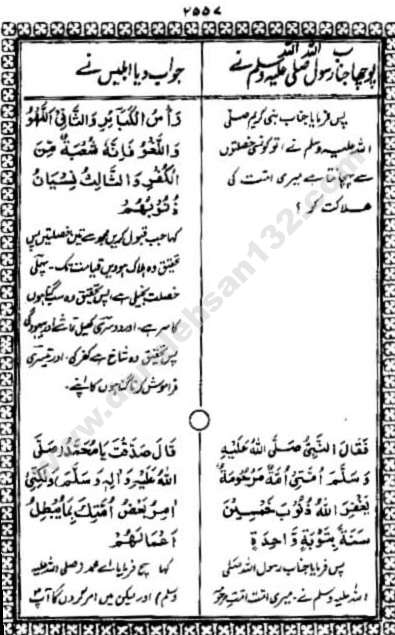 ۲۵۵۷
پوچھا جناب رسول اللہ صلی اللہ علیہ وسلم نے
پس فرمایا جناب نبی کریم صلی
اللہ علیہ وسلم نے تو کونسی خصلتوں
سے پہچانتا ہے میری امت کی
ہلاکت کو؟
فَقَالَ النَّبِيُّ صَلَّى اللهُ عَلَيْهِ
وَسَلَّمَ اُمَّتِيْ اُمَّةٌ مَرْحُوْمَةٌ
يَغْفِرُ اللهُ ذُنُوْبَ خَمْسِيْنَ
سَنَةً بِتَوْبَةٍ وَّاحِدَةٍ
پس فرمایا جناب رسول اللہ صلی
اللہ علیہ وسلم نے۔ میری امت امت مرحومہ
جواب دیا ابلیس نے
رَأْسُ الْكَبَائِرِ وَالثَّانِيْ اللَّهْوُ
وَاللَّغْوُ فَاِنَّهٗ شُعْبَةٌ مِّنَ
الْكُفْرِ وَالثَّالِثُ نِسْيَانُ
ذُنُوْبِهِمْ
کہا جب قبول کریں مجھ سے تین خصلتیں پس
تحقیق وہ ہلاک ہو ویں قیامت تک۔ پہلی
خصلت بخیلی ہے پس تحقیق وہ سب گناہوں
کا سر ہے۔ اور دوسری کھیل تماشے اور بیہودگی
پس تحقیق وہ شاخ ہے کفر کی۔ اور تیسری
فراموش کرنا گناہوں کا اپنے۔
قَالَ صَدَقْتَ يَا مُحَمَّدُ صَلَّى
اللهُ عَلَيْهِ وَاٰلِهٖ وَسَلَّمَ وَلٰكِنِّيْ
اٰمُرُ بَعْضَ اُمَّتِكَ بِمَا يُبْطِلُ
اَعْمَالَهُمْ
کہا سچ فرمایا اے محمد (صلی اللہ علیہ
وسلم) اور لیکن میں امر کروں گا آپ